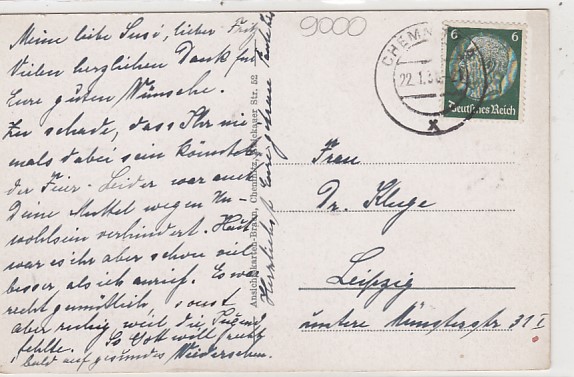 Meine liebe Susi, lieber Fritz
Vielen herzlichen Dank für
Eure guten Wünsche.
Zu schade, dass Ihr nie
mals dabei sein könntet
der Feier. Leider war auch
Deine Muttel wegen Un-
wohlsein verhindert. Heut
war es ihr aber schon viel
besser, als ich anrief. Es war
recht gemütlich, sonst
aber ruhig weil die Jugend
fehlte. So Gott will recht
bald auf gesundes Wiedersehen.
Herzlichst Eure getreue Tante
Ansichtskarten-Braun, Chemnitz, Zwickauer Str. 52
9000
CHEMNITZ
22.1.3
x
6 6
Deutsches Reich
Frau
Dr. Kluge
Leipzig
untere Münsterstr 31 I